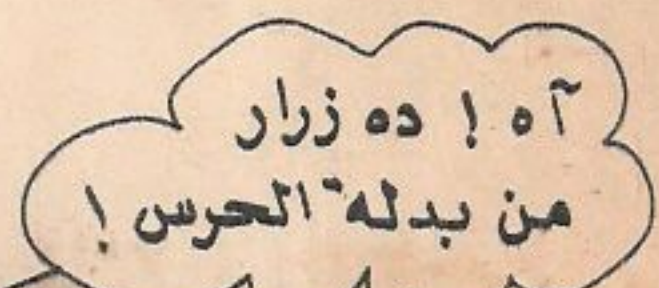 آه ! ده زرار
من بدلة الحرس !